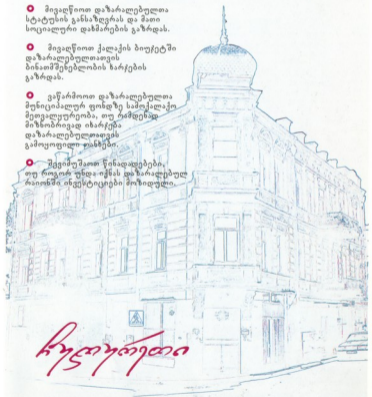 მივაღწიოთ დაზარალებულთა
სტატუსის განსაზღვრას და მათი
სოციალური დახმარების გაზრდას.
მივაღწიოთ ქალაქის ბიუჯეტში
დაზარალებულთათვის
ბინათმშენებლობის ხარჯების
გაზრდას.
ვაწარმოოთ დაზარალებულთა
მუნიციპალურ ფონდზე სამოქალაქო
მეთვალყურეობა, თუ რამდენად
მიზნობრივად იხარჯება
დაზარალებულთათვის
გამოყოფილი თანხები.
შევიმუშაოთ წინადადებები,
თუ როგორ უნდა იქნას დაზარალებულ
რაიონში ინვესტიციები მოზიდული.
ჩუღურეთი